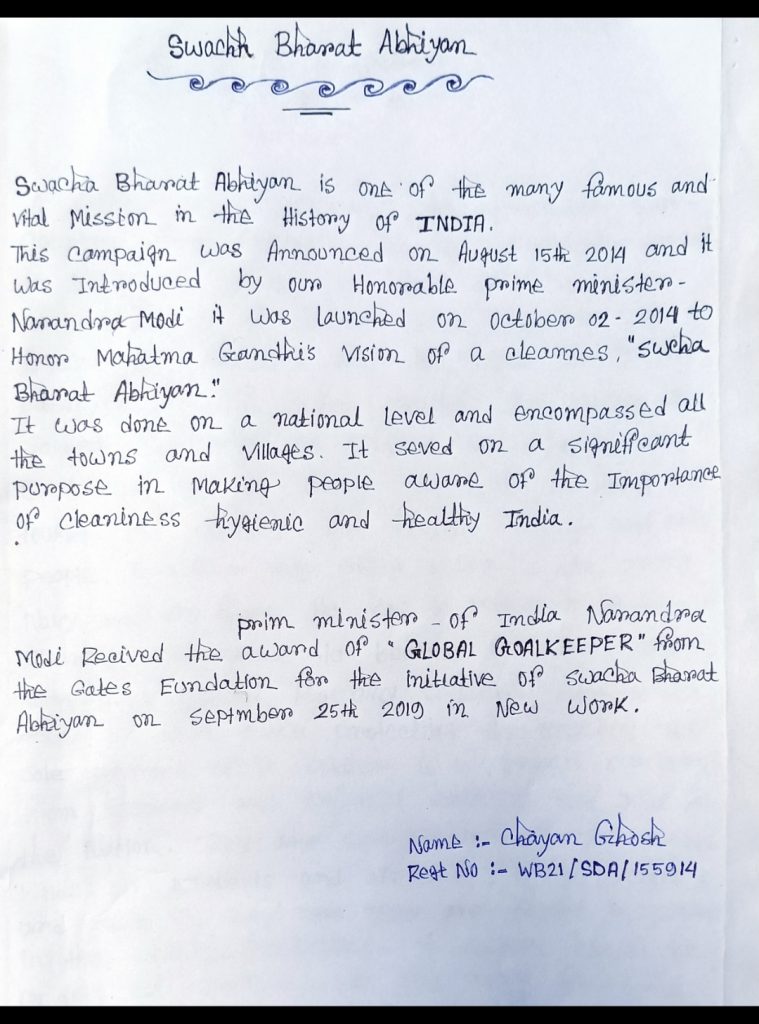 Swachh Bharat Abhiyan
Swacha Bharat Abhiyan is one of the many famous and
Vital Mission in the History of INDIA.
This campaign was Announced on August 15th 2014 and it
was Introduced by our Honorable prime minister-
Narandra Modi it was launched on October 02- 2014 to
Honor Mahatma Gandhi's vision of a cleannes, "Swcha
Bharat Abhiyan."
It was done on a national level and encompassed all
the towns and villages. It seved on a significant
purpose in making people aware of the Importance
of cleaniness hygienic and healthy India.
prim minister - of India Narandra
Modi Recived the award of "GLOBAL GOALKEEPER" from
the Gates Eundation for the initiative of Swacha Bharat
Abhiyan on septmber 25th 2019 in New Work.
Name :- Chayan Ghosh
Regt No :- WB21/SDA/155914